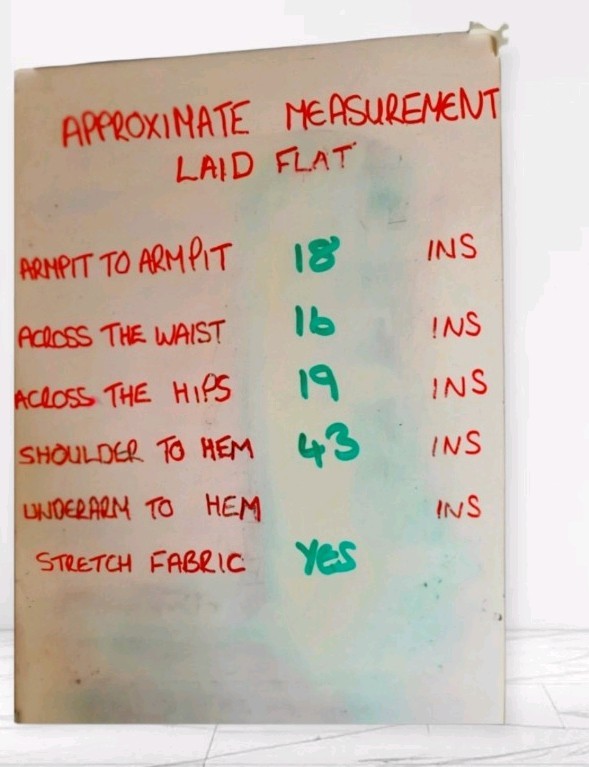 APPROXIMATE MEASUREMENT
LAID FLAT
ARMPIT TO ARMPIT 18 INS
ACROSS THE WAIST 16 INS
ACROSS THE HIPS 19 INS
SHOULDER TO HEM 43 INS
UNDERARM TO HEM INS
STRETCH FABRIC YES